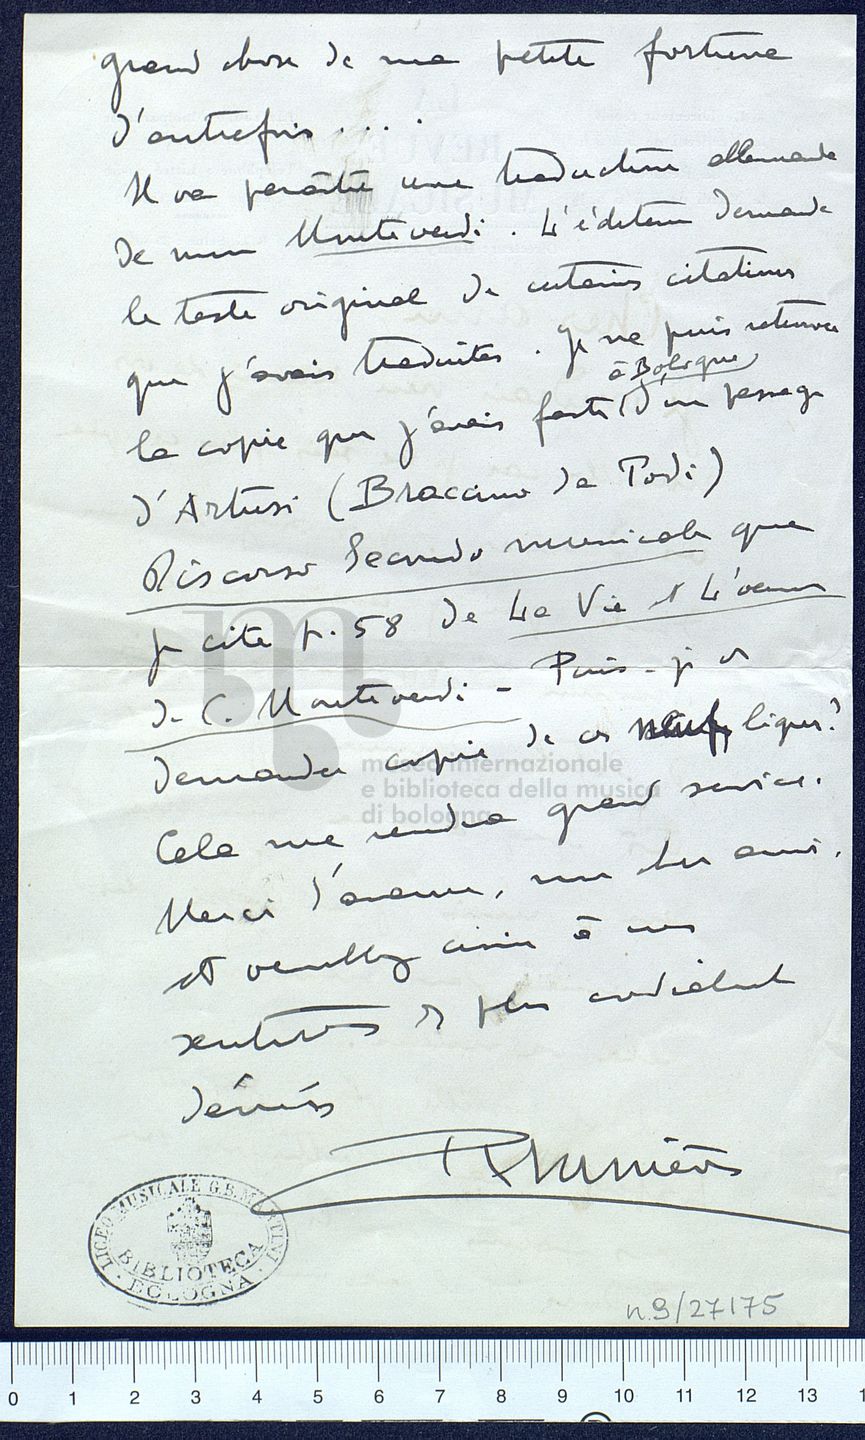 grand chose de ma petite fortune
d'autrefois....
Il va paraître une traduction allemande
de mon Monteverdi. L'éditeur demande
le texte original de certaines citations
que j'avais traduites. Je ne puis retrouver
à Bologne
la copie que j'avais faite d'un passage
d'Artusi (Braccino da Todi)
Discorso Secondo musicale que
je cite p. 58 de La Vie et L'œuvre
de C. Monteverdi - Puis-je
demander copie de ces lignes?
museo internazionale
e biblioteca della musica
di bologna
Cela me rendra grand service.
Merci d'avance, mon cher ami,
et veuillez croire à mes
sentiments les plus cordialement
dévoués
Prunières
LICEO MUSICALE G.B. MARTINI
BIBLIOTECA
BOLOGNA
n.9/27175
0 1 2 3 4 5 6 7 8 9 10 11 12 13